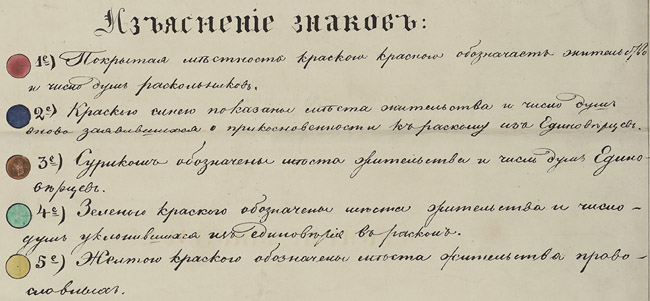 Изъясненіе знаковъ:
1е) Покрытая мѣстность краскою красною обозначаетъ жительство
и число душъ раскольниковъ.
2е) Краскою синею показаны мѣста жительства и число душъ
вновь заявившихся о прикосновенности къ расколу изъ Единовѣрцевъ.
3е) Сурикомъ обозначены мѣста жительства и число душъ Едино-
вѣрцевъ.
4е) Зеленою краскою обозначены мѣста жительства и число-
душъ уклонившихся изъ единовѣрія въ расколъ.
5е) Желтою краскою обозначены мѣста жительства право-
славныхъ.